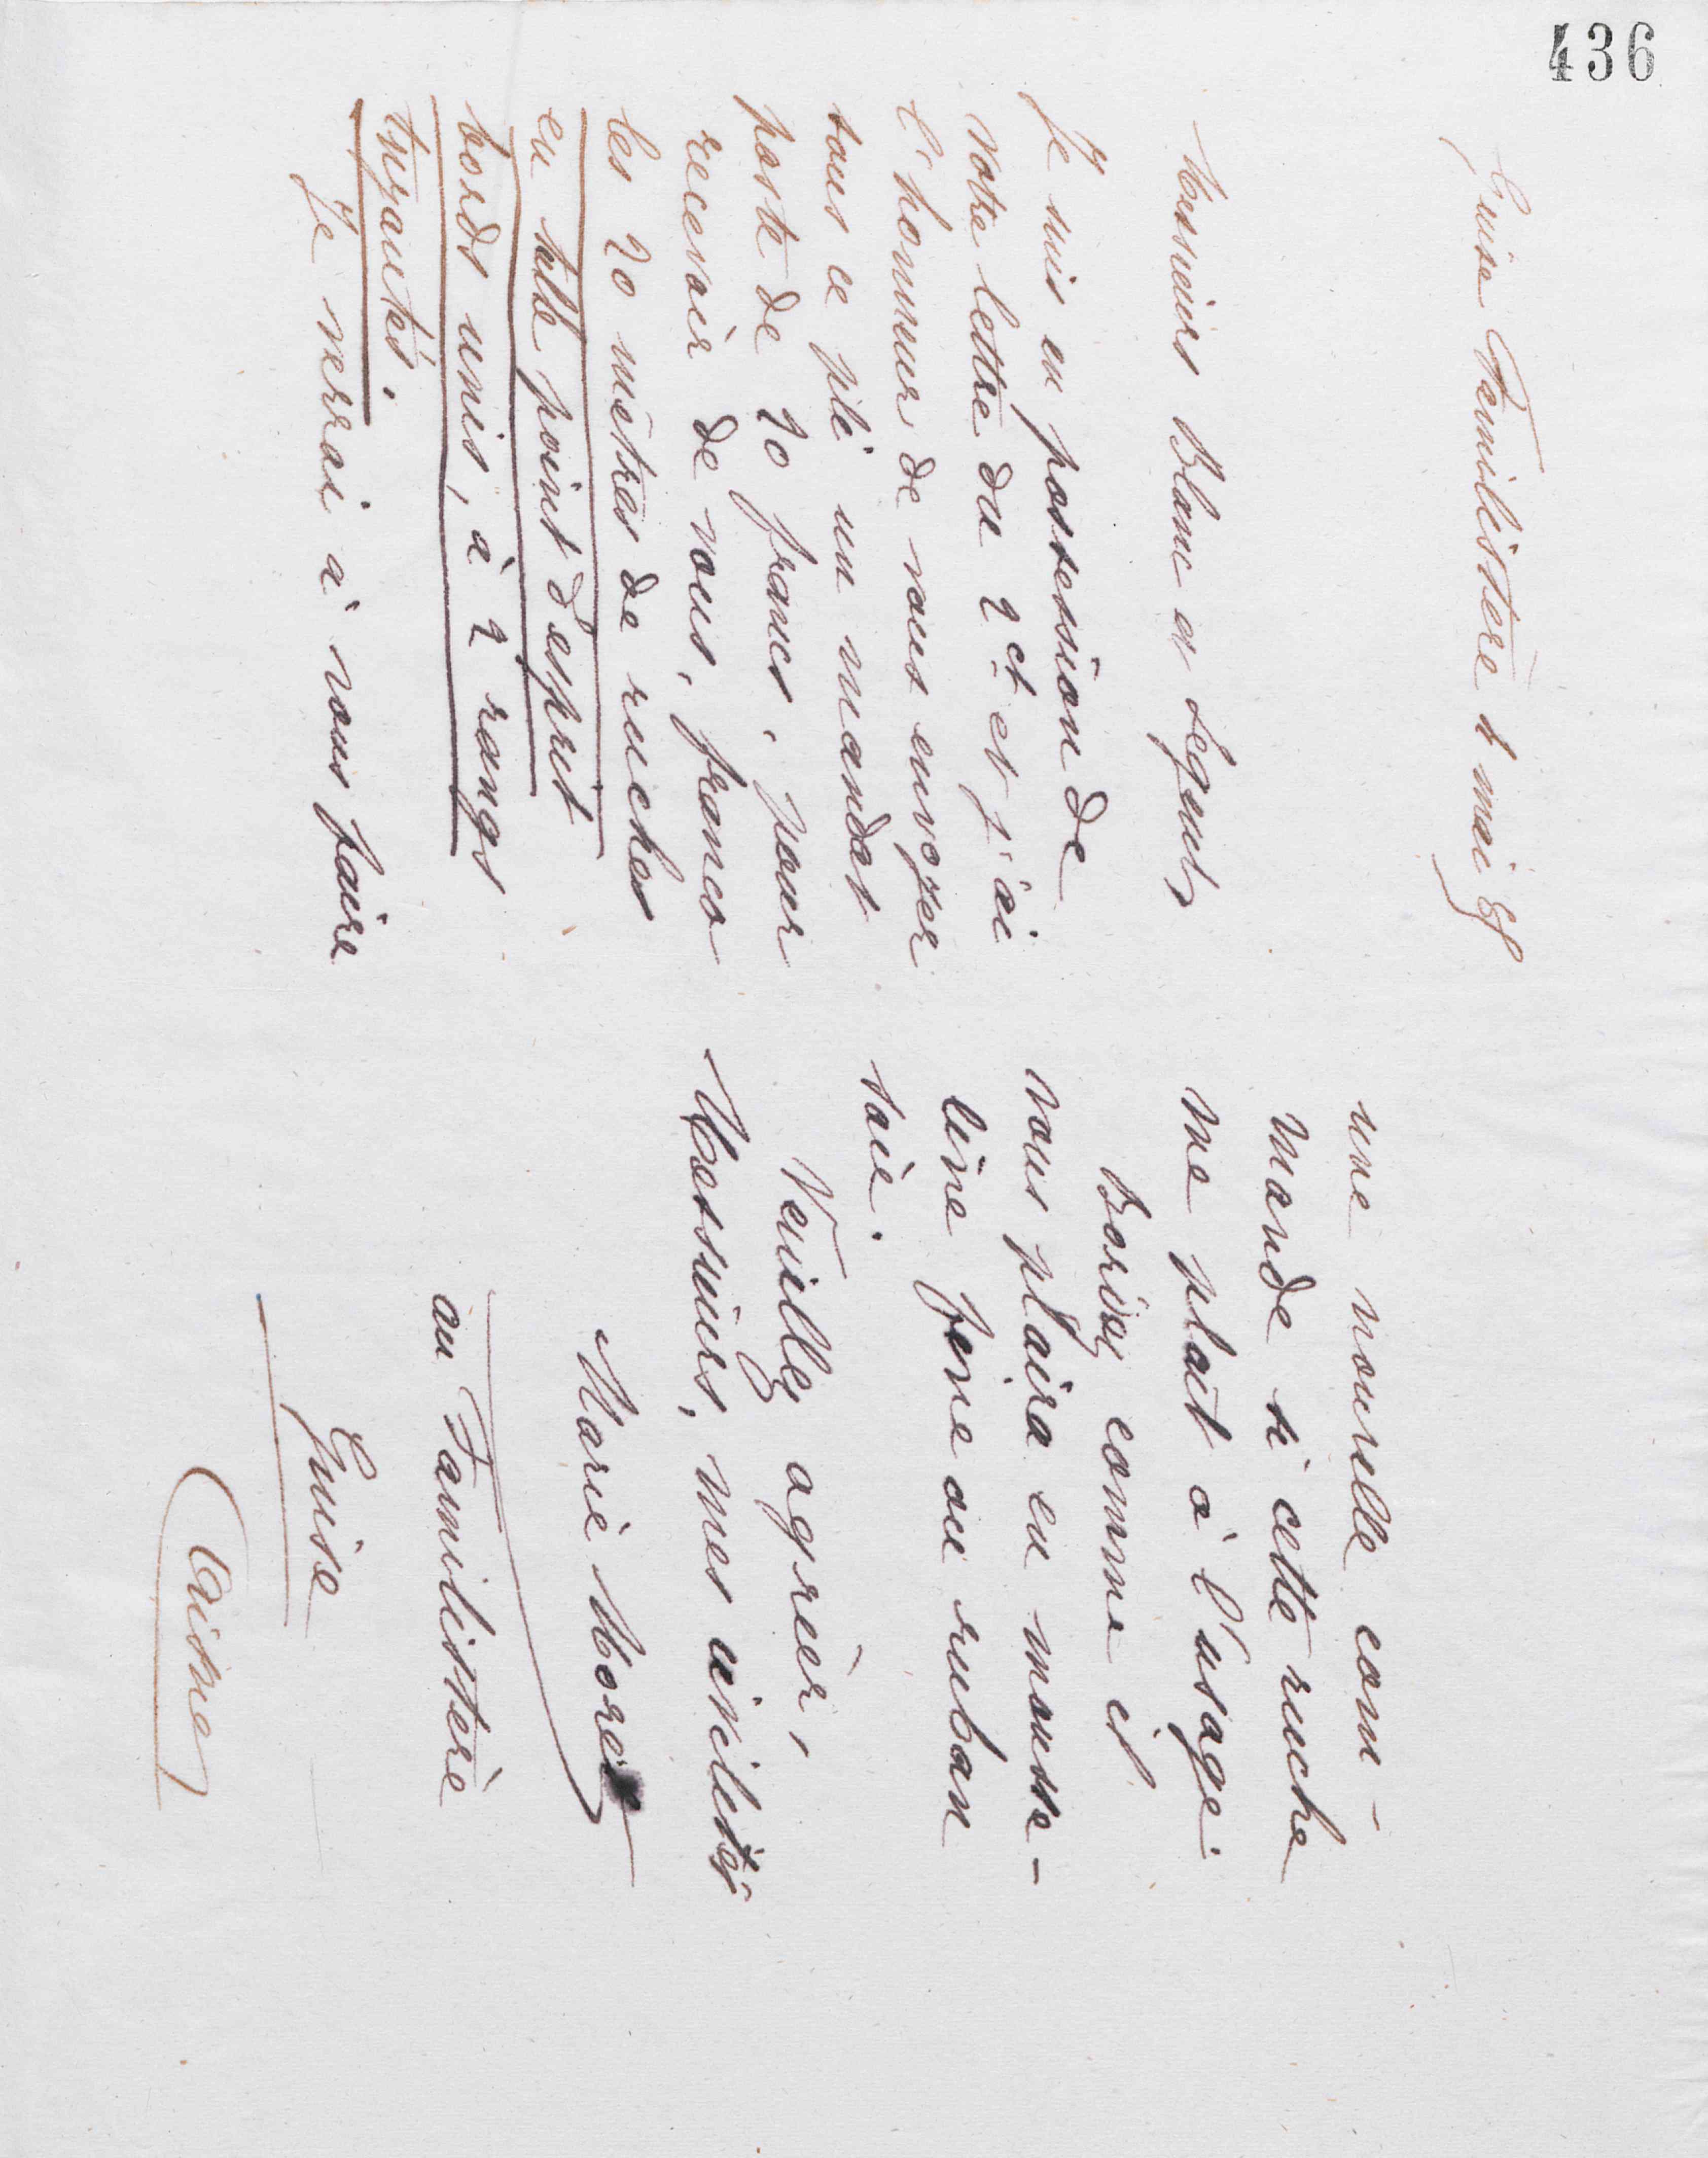 436
Guise Familistère 4 mai 88
Messieurs Blanc et Legent,
Je suis en possession de
votre lettre du 2 ct et j'ai
l'honneur de vous envoyer
sous ce pli un mandat
poste de 20 francs, pour
recevoir de vous, franco
les 20 mètres de ruches
en tulle point d'esprit
bords unis, à 2 rangs
tuyautés.
Je verrai à vous faire
une nouvelle com-
mande si cette ruche
me plait à l'usage.
Bordez comme il
vous plaira en mousse-
line fine ou ruban
soie.
Veuillez agréer,
Messieurs, mes civilités
Marie Moret
au Familistère
Guise
Aisne